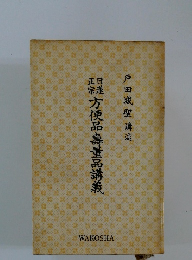 戸田城聖講述
日蓮正宗
方便品寿量品講義
WAKOSHA